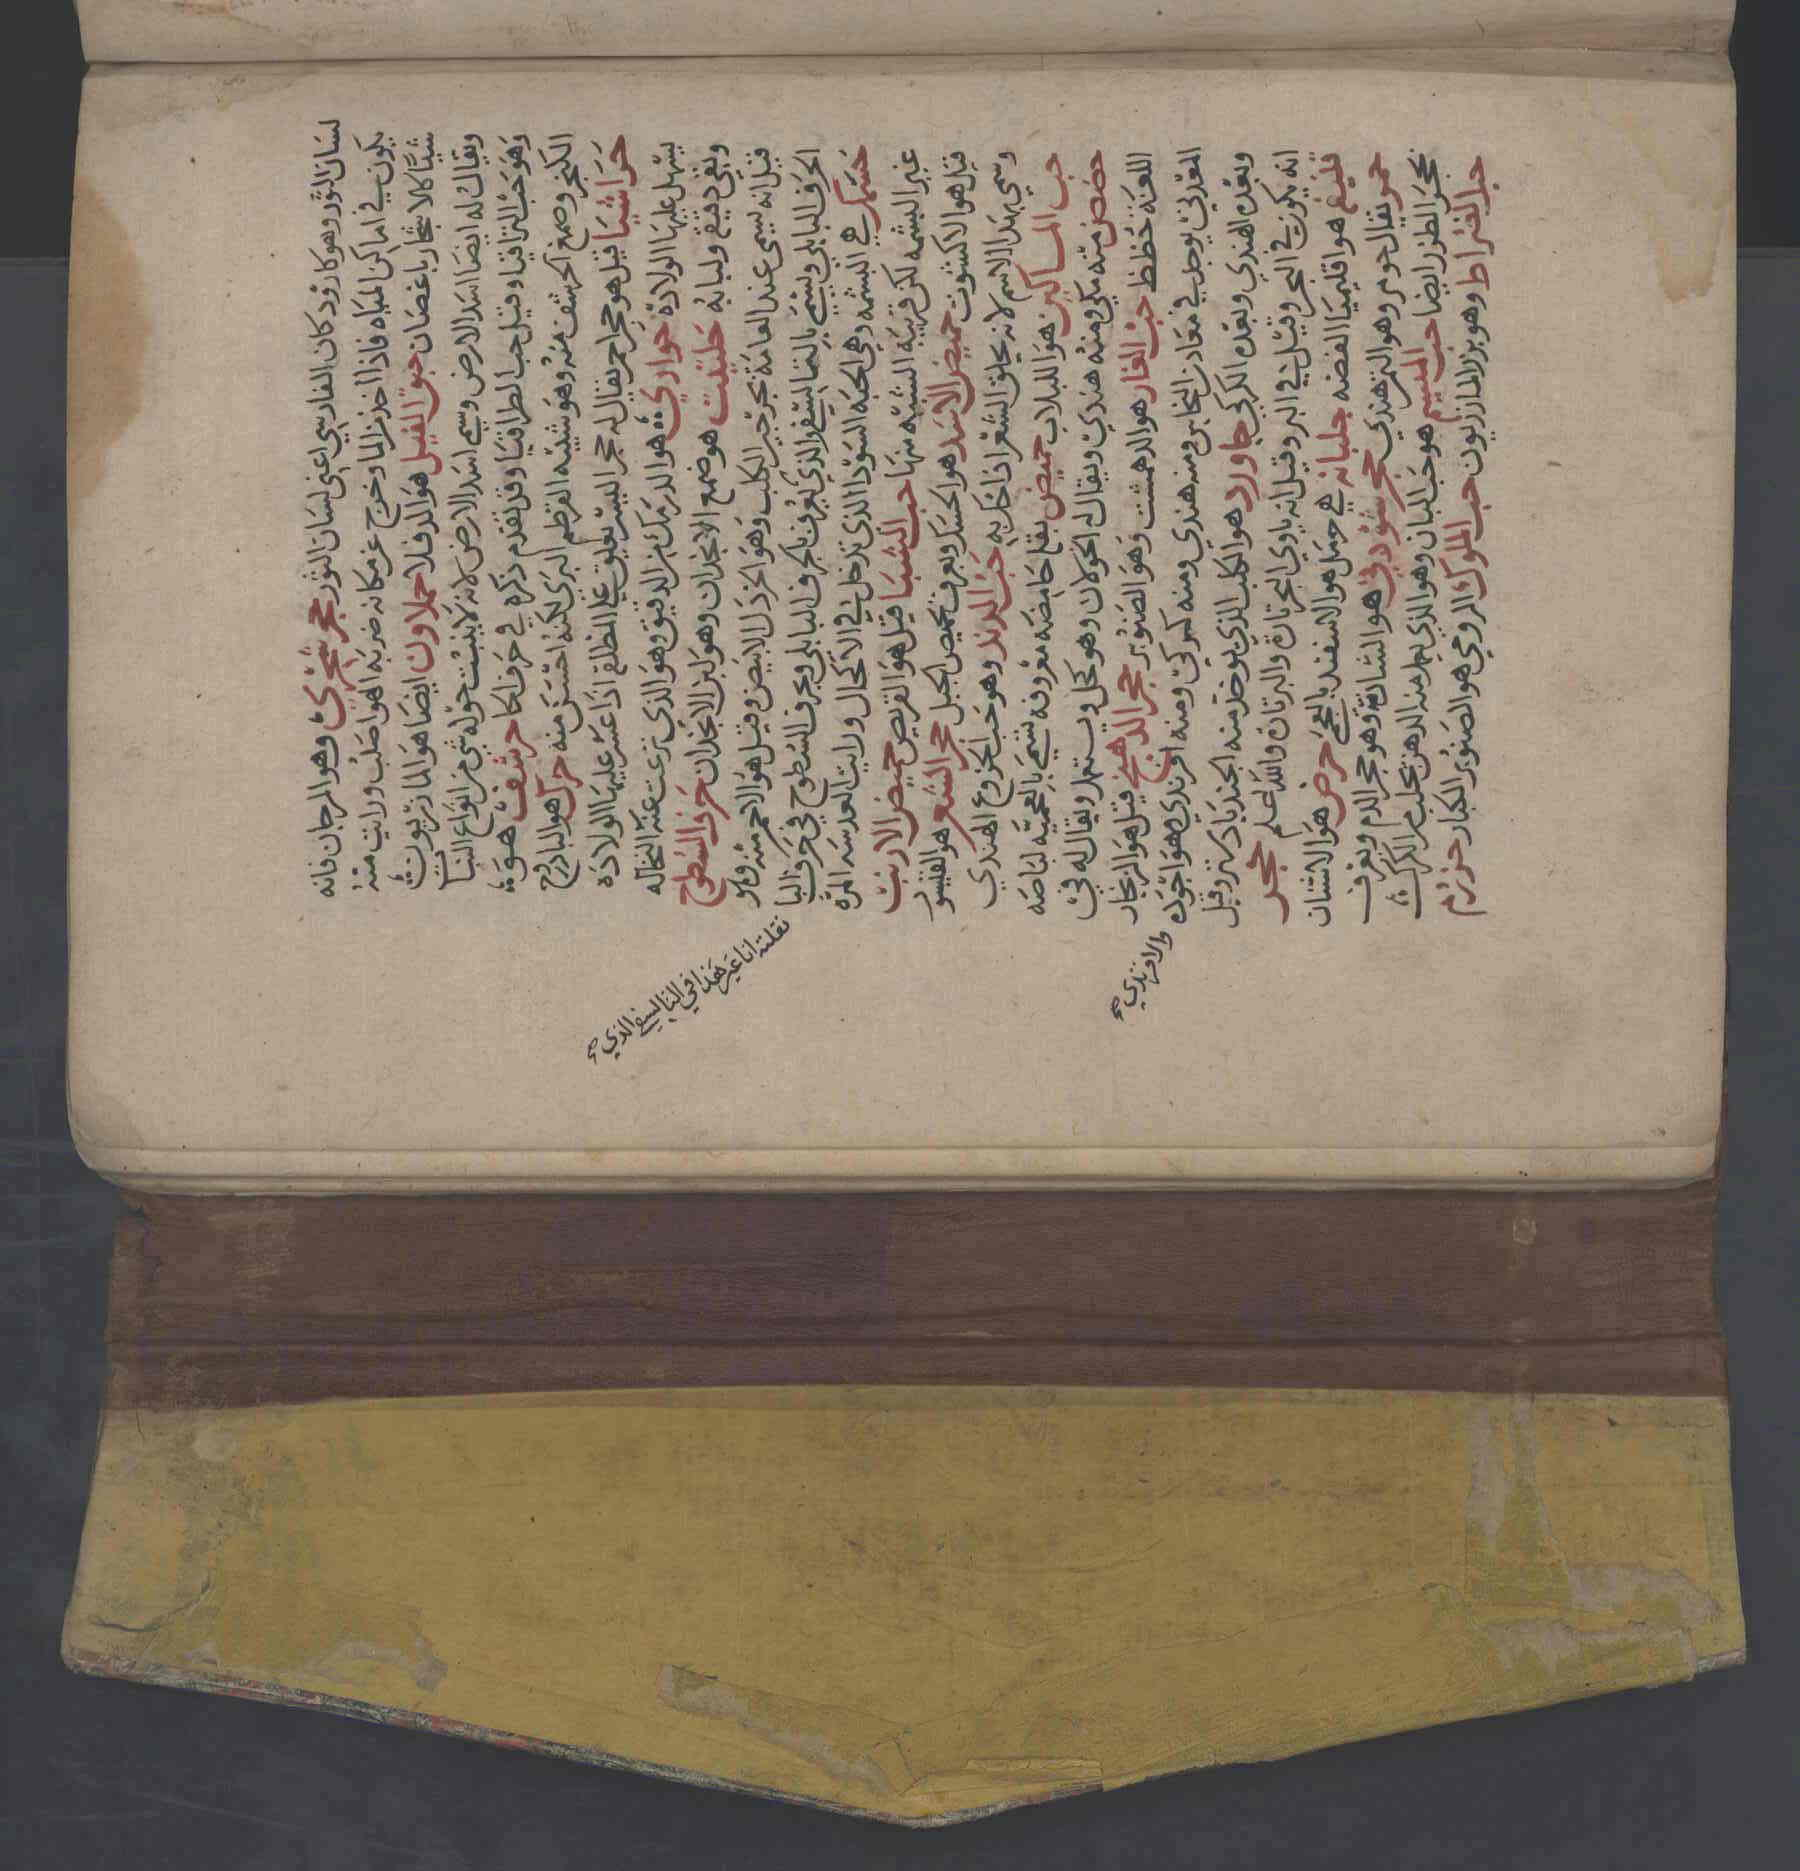 لسان الثور وهو كاوزكان الفارسي اعني لسان الثور حجر شجري وهو المرجان فانه
يكون في اماكن المياه فاذا اخذ من الما وخرج عن مكانه ضربه الهوا صلب ورايت منه
شيئا كالاشجار باغصان حبق الفيل هو الدفلا حملاون ايضا هو المازريون
ويقال له ايضا اسد الارض وسمي اسد الارض لانه لا ينبت حوله شي من انواع النبات
وهو حب التراقيا وقيل حب الطراقيا وقد تقدم ذكره في حرف الحا حرشف هو
الكنجر وصمغ الحرشف منه وهو شبيه القرطم البري لكنه اخشن منه حرك هو الباذروج
حراشيا قيل هو حجر احمر يقال له حجر اليسر يعلق على المطلقة اذا عسر عليها الولادة
يسهل عليها الولادة حواري هو الدرمك من الدقيق وهو الذي نزعت عنه النخاله
وبقي دقيقه ولبابه حلتيت هو صمغ الانجدان وهو لبن الانجدان حرف السطوح
قيل انه يسمى عند العامة بجرجير الكلب وهو الخردل الابيض وقيل هو الاحمر منه وهو
الحرف البابلي ويسمى الذي يعرف بالحرف البابلي وبحرف السطوح في حرف البا
نقلته انا غير هذا في الذي صح
حشمكر هي البشمه وهي الحبة السودا الذي تدخل في الاكحال ورايت العدسه المرة
غير البشمه لكن قريبة الشبه منها حب الشبا قيل هو القريص حميض الارنب
قيل هو الاكشوت حميض الاسد هو الحسك ويعرف بحميص الجبل حجر الشعر هو القيشور
وسمي بهذا الاسم لانه يحلق الشعر اذا حك به حب الدند وهو حب الخروع الهندي
حب المساكين هو اللبلاب حميض بقله حامضه معروفه تسمى بالعجمية لباصه
حضض منه مكي ومنه هندي ويقال له الخولان وهو كحل ويستعمل ويقال له في
اللغة حظظ حب الغار هو الدهمشت وهو الصنوبر حجر الدهنج قيل هو الزنجار
المعدني يوجد في معادن النحاس ومنه هندي ومنه كركي ومنه افرندي وهو اجوده
والافرندي صح
وبعده الهندي وبعده الكركي جاورد هو الكلب الذي يوخذ منه الجندبادستر وقيل
انه يكون في البحر وقيل في البر وقيل انه ياوي البحر تارة والبر تارة والله اعلم حجر
هو اقليميا الفضه جلبانه هي حرمل هو الاسفند بالعجمي حرض هو الاشنان
حمر يقال حومر وهو التمر هندي حجر شودني هو الشادنة وهو حجر الدم ويعرف
بحجر الطور ايضا حب النسيم هو حب البان وهو الذي يعمل منه الدهن يجلب من الكرك
حب القنراط وهو بزر المازريون حب الملوك الرومي هو الصنوبر الكبار